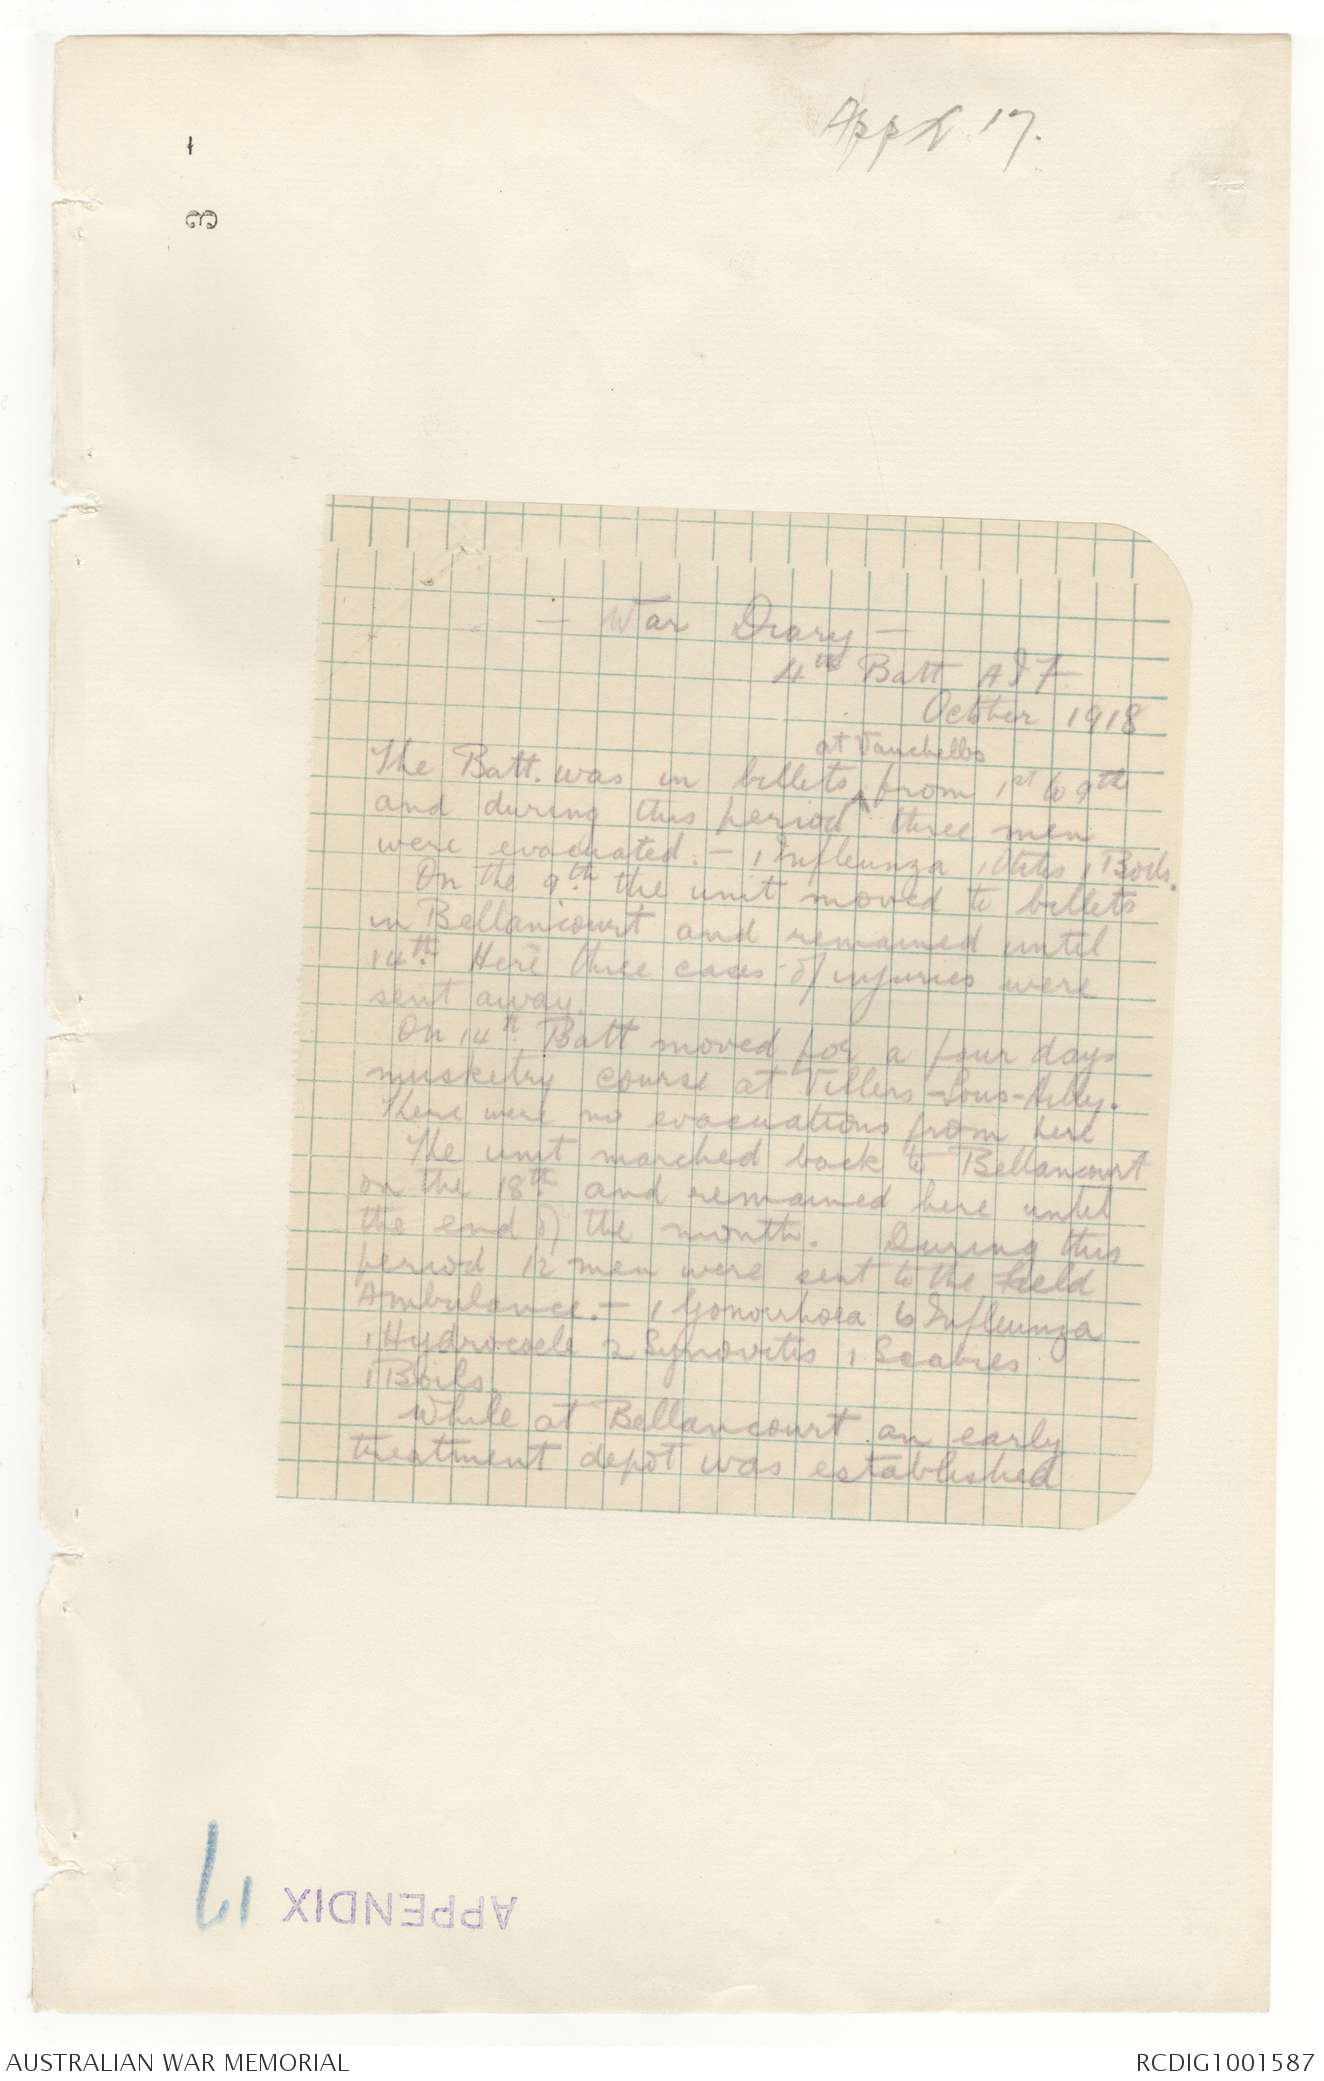 Appx 17.
1
3
- War Diary -
4th Batt A I F
October 1918
at Vauchelles
The Batt. was in billets ^ from 1st to 9th
and during this period three men
were evacuated. - 1 Infleunza 1 Otitis 1 Boils.
On the 9th. the unit moved to billets
in Bellancourt and remained until
14th. Here three cases of injuries were
sent away.
On 14th Batt moved for a four days
musketry course at Villers-Sous-Ailly.
There were no evacuations from here
The unit marched back to Bellancourt
on the 18th. and remained here until
the end of the month. During this
period 12 men were sent to the field
Ambulance. - 1 Gonorrhoea 6 Infleunza
1 Hydrocoele 2 Synovitis 1 Scabies
1 Boils.
While at Bellancourt an early
treatment depot was established
APPENDIX 17
AUSTRALIAN WAR MEMORIAL
RCDIG1001587